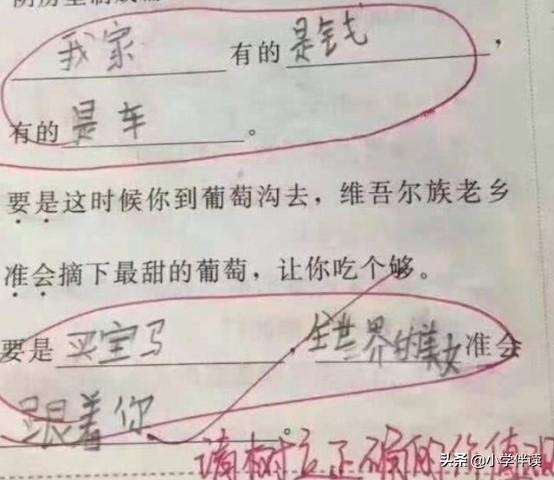 我家有的是钱，
有的是车。
要是这时候你到葡萄沟去，维吾尔族老乡
准会摘下最甜的葡萄，让你吃个够。
要是买宝马，全世界的美女准会
跟着你。
请树立正确的价值观
头条@小学伴读